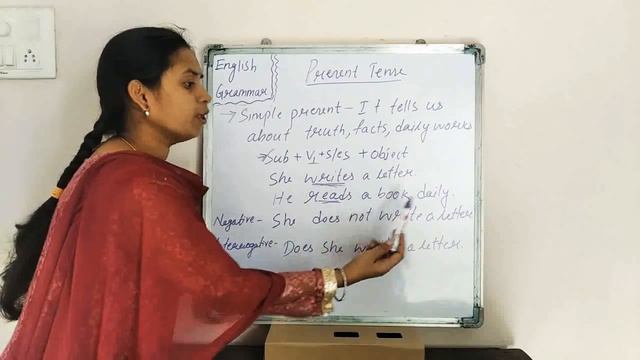 English
Grammar
Present Tense
→ Simple present - It tells us
about truth, facts, daily works
Sub + V1 + s/es + object
She writes a letter.
He reads a book daily.
Negative - She does not write a letter
Does She a letter.